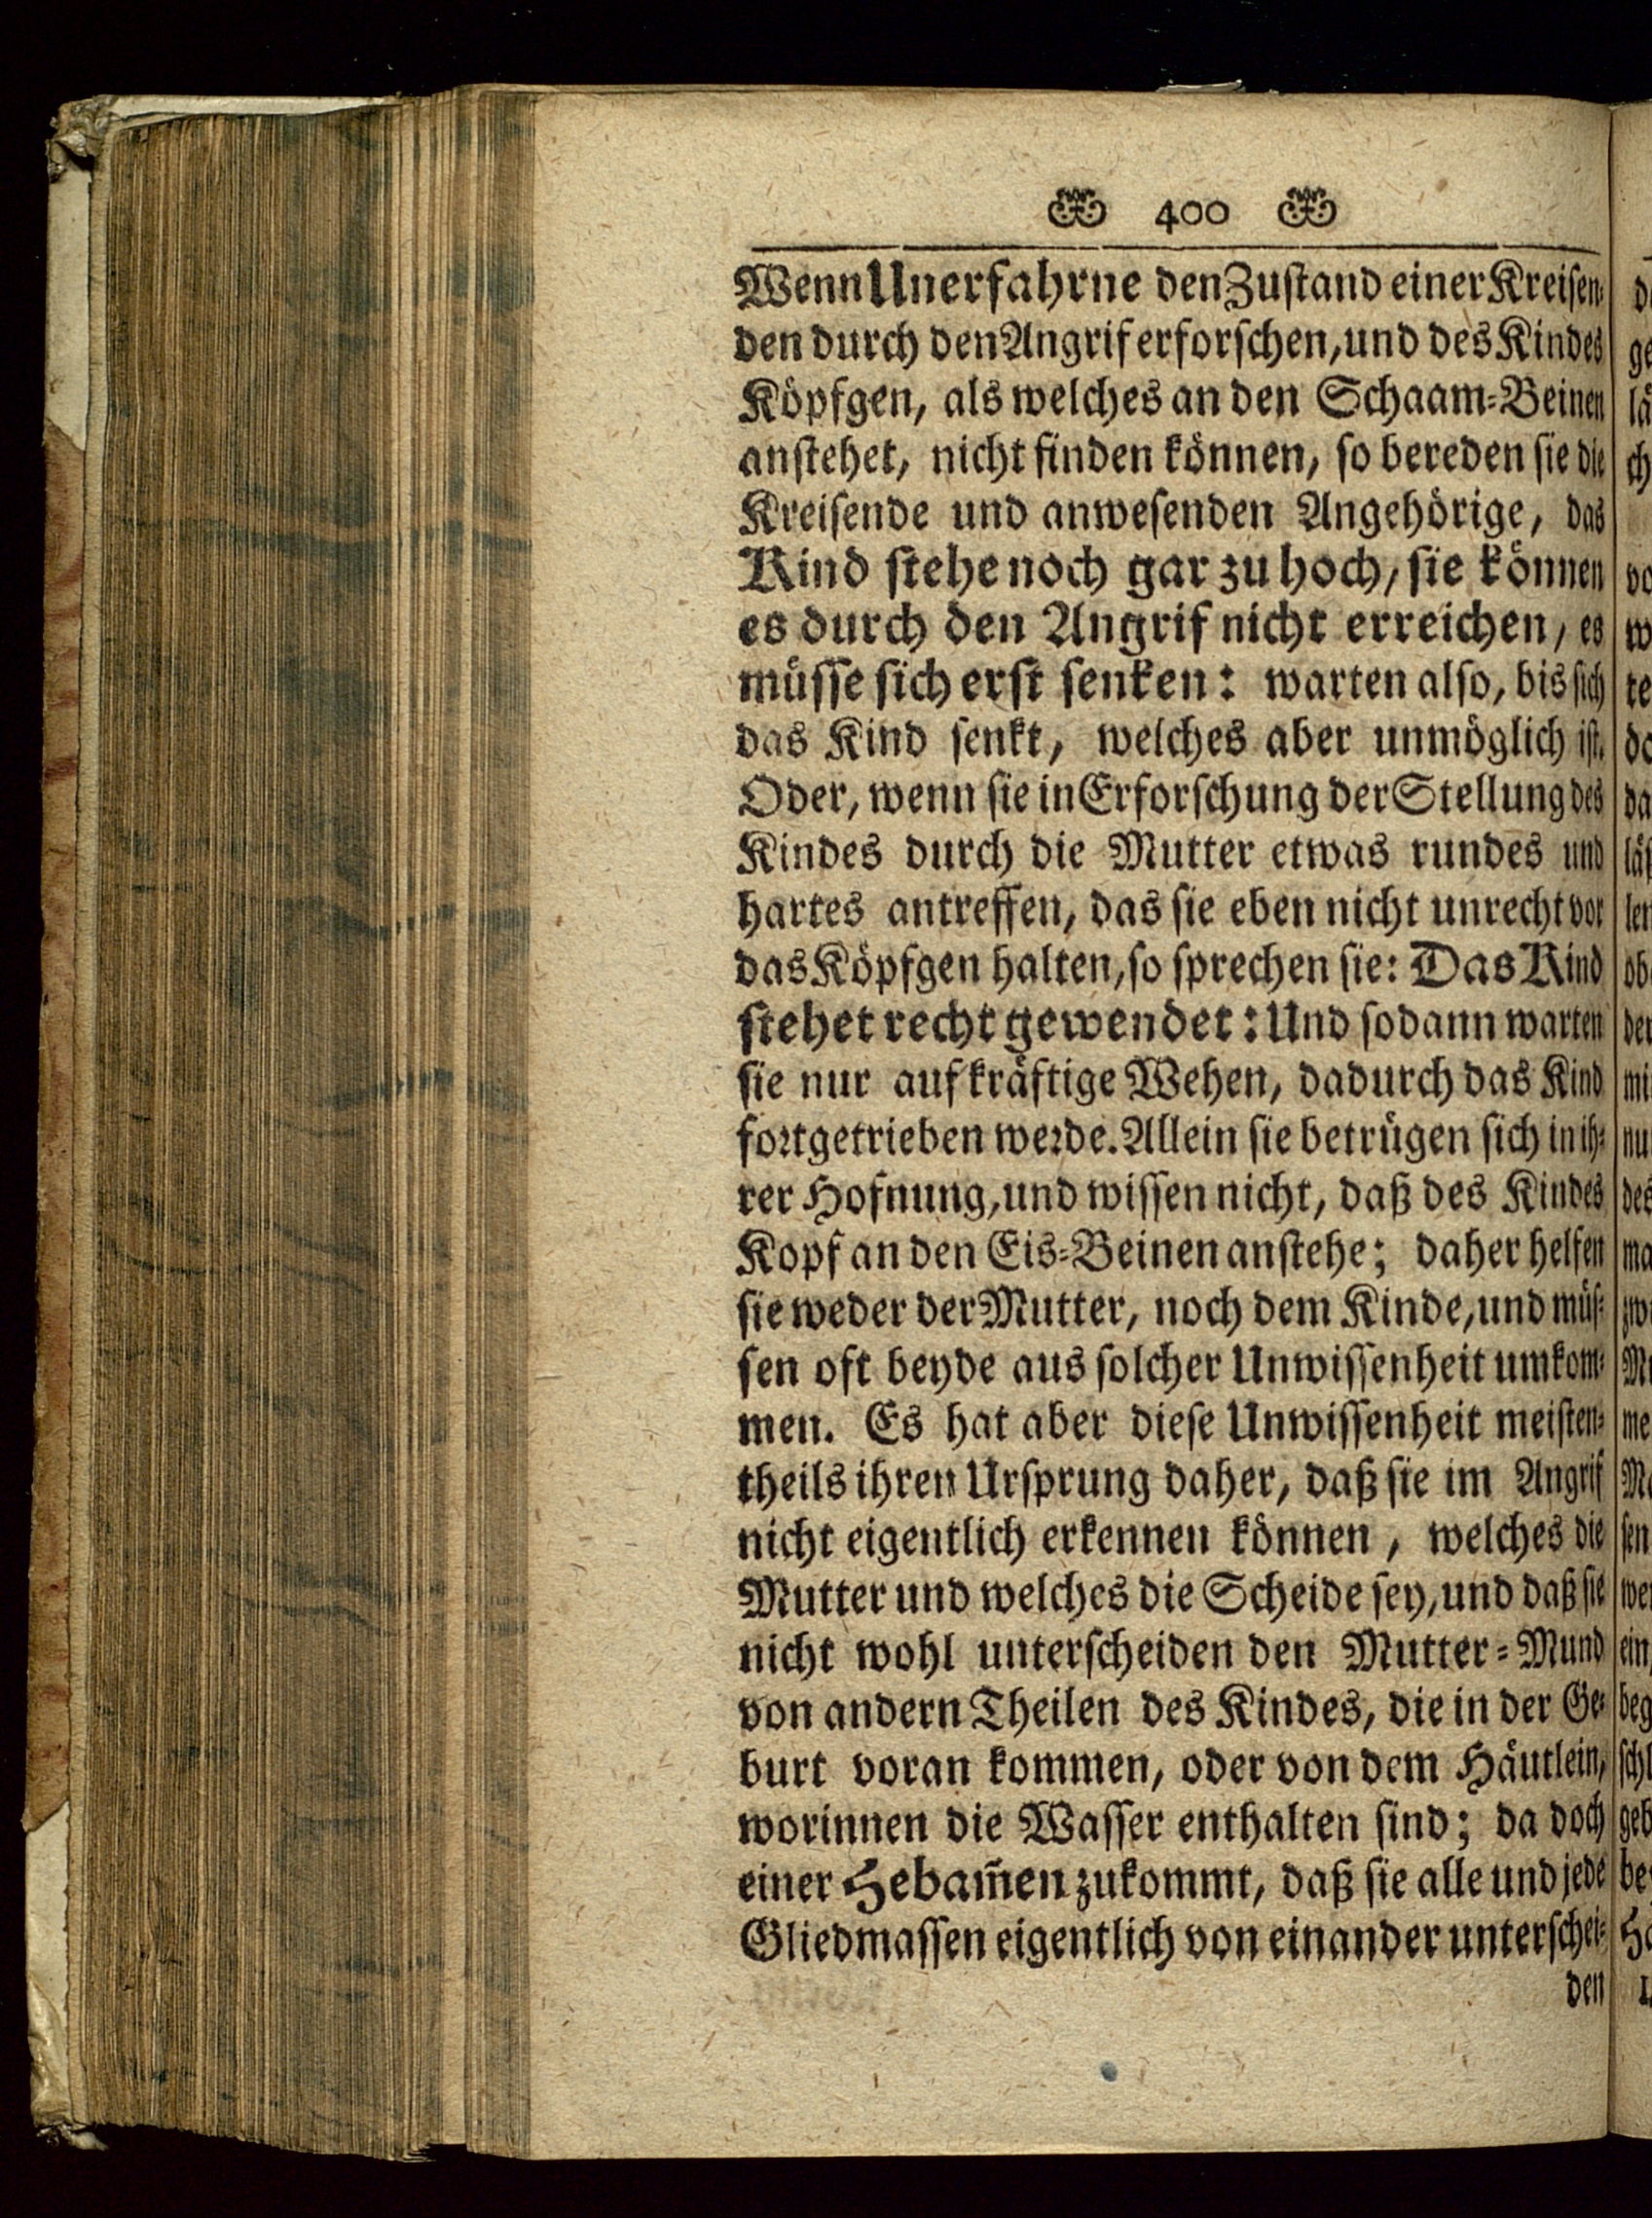 400
Wenn Unerfahrne den Zustand einer Kreisen-
den durch den Angrif erforschen, und des Kindes
Köpfgen, als welches an den Schaam-Beinen
anstehet, nicht finden können, so bereden sie die
Kreisende und anwesenden Angehörige, das
Kind stehe noch gar zu hoch, sie können
es durch den Angrif nicht erreichen, es
müsse sich erst senken: warten also, bis sich
das Kind senkt, welches aber unmöglich ist.
Oder, wenn sie in Erforschung der Stellung des
Kindes durch die Mutter etwas rundes und
hartes antreffen, das sie eben nicht unrecht vor
das Köpfgen halten, so sprechen sie: Das Kind
stehet recht gewendet: Und sodann warten
sie nur auf kräftige Wehen, dadurch das Kind
fortgetrieben werde. Allein sie betrügen sich in ih-
rer Hofnung, und wissen nicht, daß des Kindes
Kopf an den Eis-Beinen anstehe; daher helfen
sie weder der Mutter, noch dem Kinde, und müs-
sen oft beyde aus solcher Unwissenheit umkom-
men. Es hat aber diese Unwissenheit meisten-
theils ihren Ursprung daher, daß sie im Angrif
nicht eigentlich erkennen können, welches die
Mutter und welches die Scheide sey, und daß sie
nicht wohl unterscheiden den Mutter-Mund
von andern Theilen des Kindes, die in der Ge-
burt voran kommen, oder von dem Häutlein,
worinnen die Wasser enthalten sind; da doch
einer Hebam̃en zukommt, daß sie alle und jede
Gliedmassen eigentlich von einander unterschei-
den